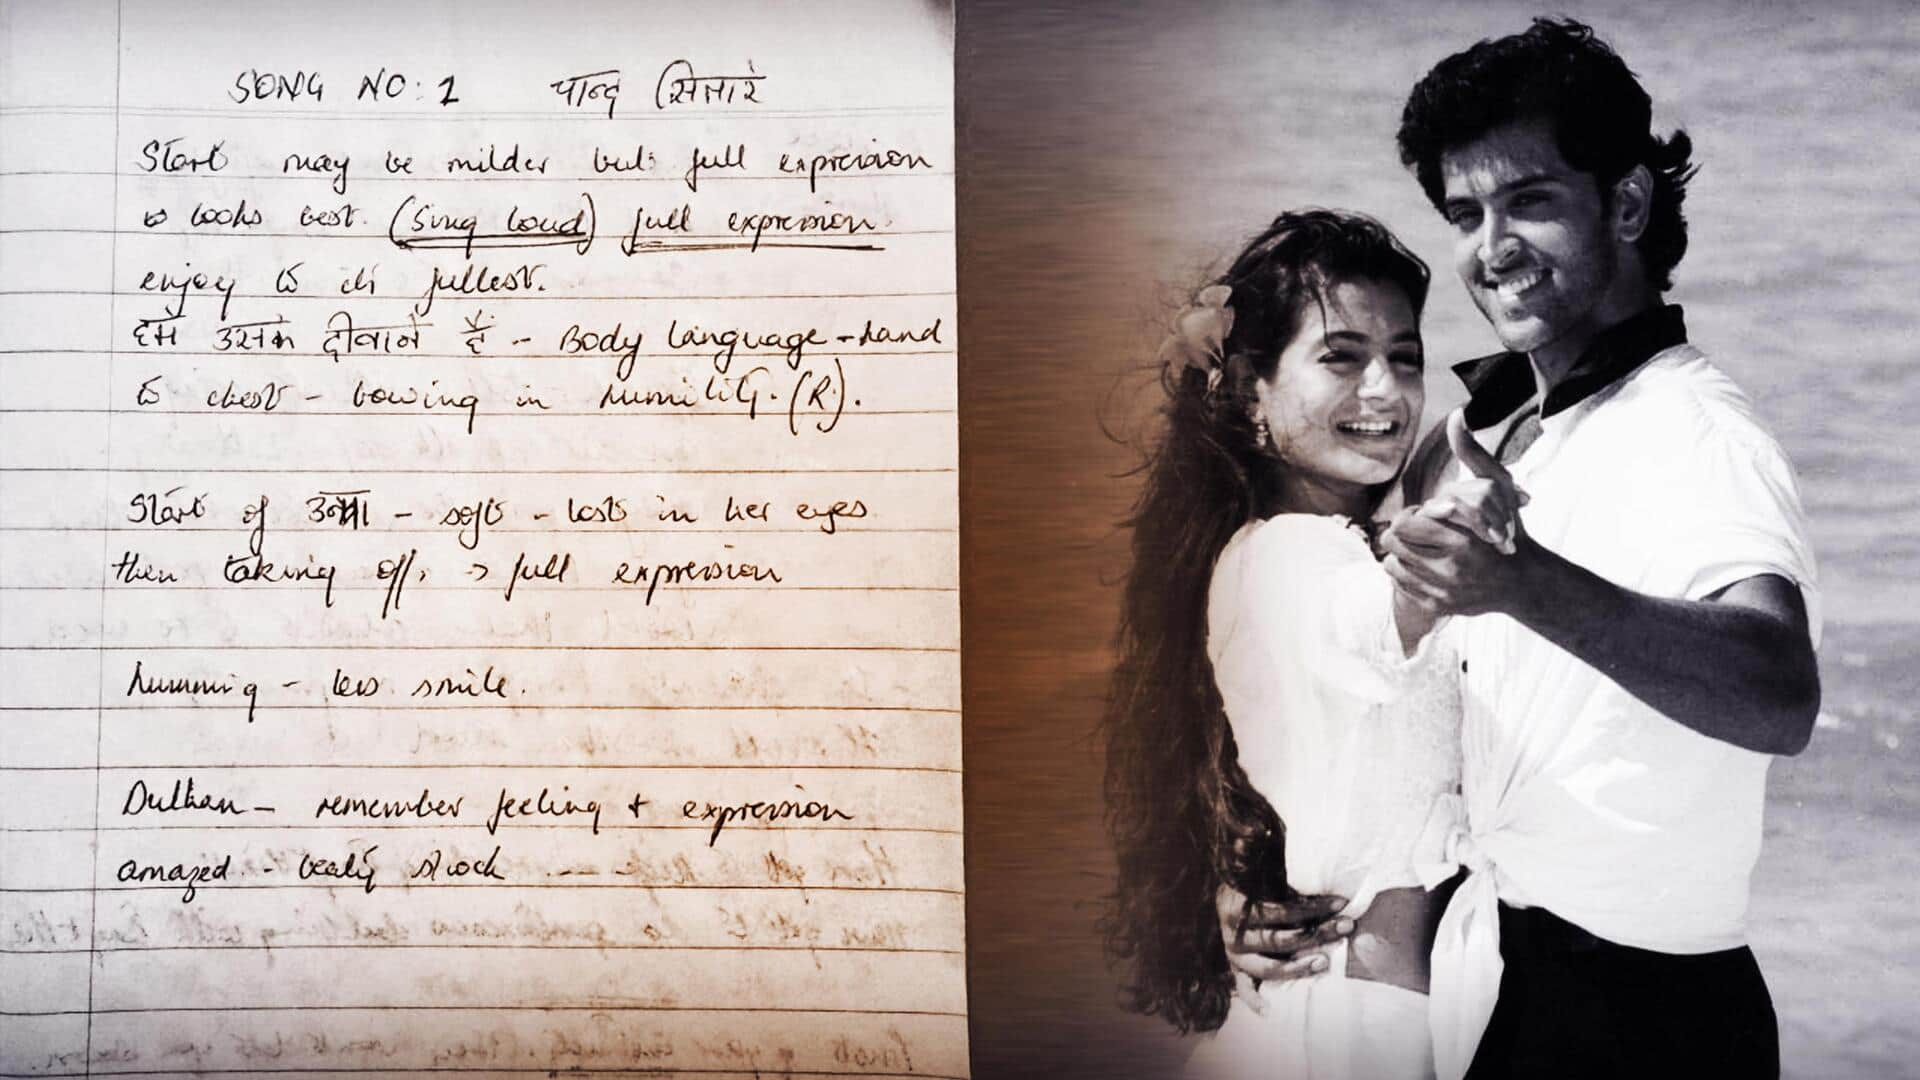 SONG NO: 1 चान्द सितारे
Start may be milder but full expression
to looks best. (Sing loud) full expression.
enjoy to its fullest.
हम उसके दीवाने हैं - Body language - hand
to chest - bowing in humility. (R).
Start of - soft - lost in her eyes
then taking off, → full expression
humming - less smile.
Dulhan - remember feeling + expression
amazed. - really shock ----